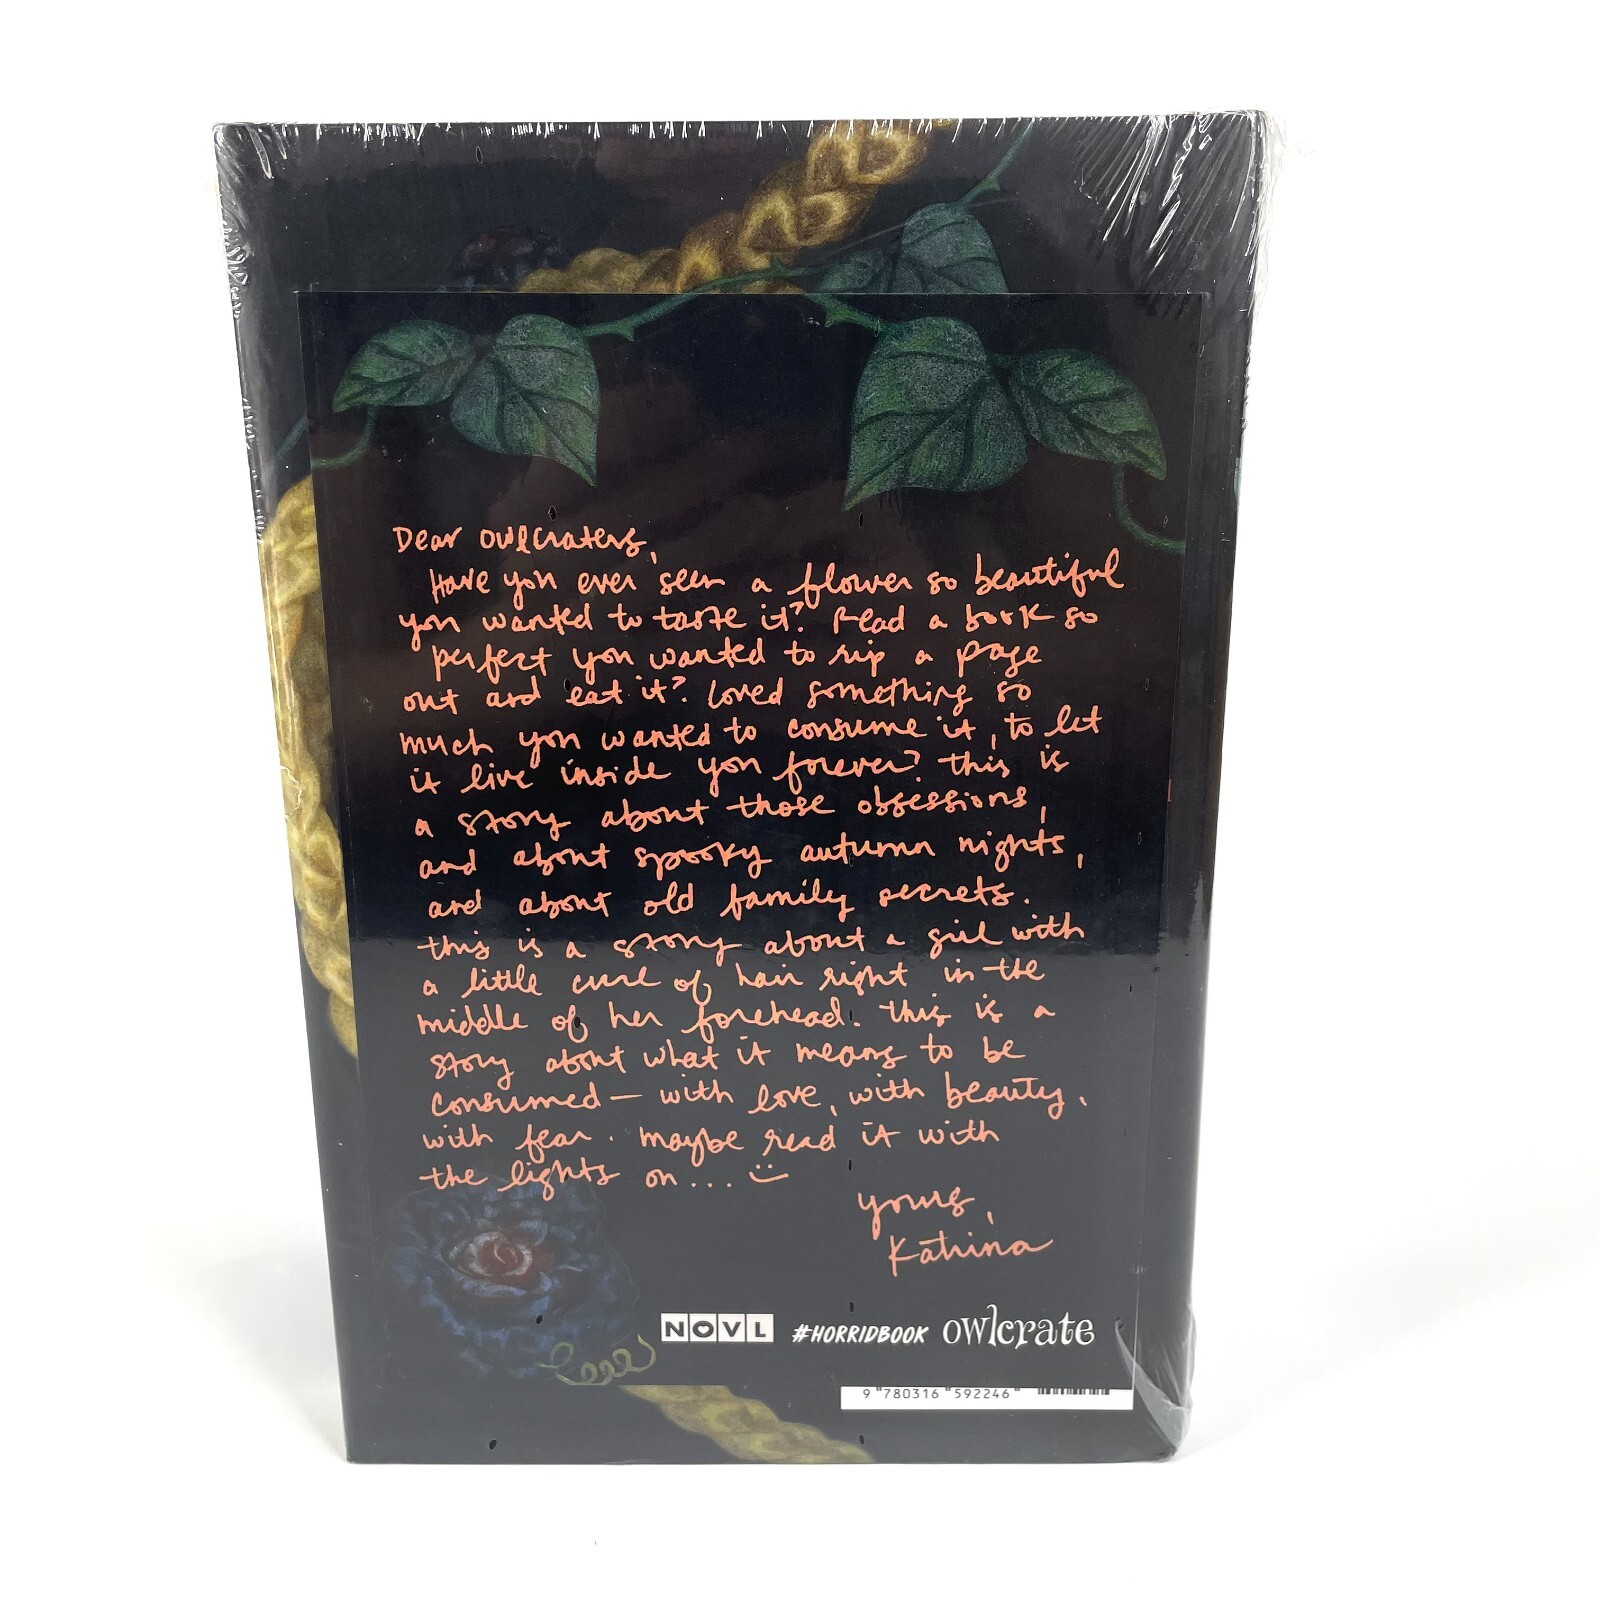 Dear Owlcraters,
Have you ever seen a flower so beautiful
you wanted to taste it? Read a book so
perfect you wanted to rip a page
out and eat it? Loved something so
much you wanted to consume it, to let
it live inside you forever? This is
a story about those obsessions,
and about spooky autumn nights,
and about old family secrets.
This is a story about a girl with
a little curl of hair right in the
middle of her forehead. This is a
story about what it means to be
consumed — with love, with beauty,
with fear. Maybe read it with
the lights on... :)
Yours,
Katrina
NOVL #HORRIDBOOK owlcrate
9 780316 592246